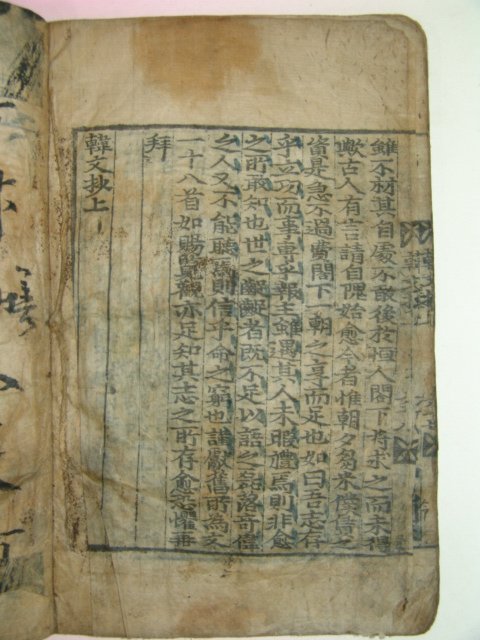 雖不材其自處不敢後於恒人閣下將求之而未得
歟古人有言請自隗始愈今者惟朝夕芻米僕賃之
資是急不過費閣下一朝之享而足也如曰吾志存
乎立功而事專乎報主雖遇其人未暇禮焉則非愈
之所敢知也世之齪齪者既不足以語之磊落奇偉
之人又不能聽焉則信乎命之窮也謹獻舊所為文
一十八首如賜覽觀亦足知其志之所存愈恐懼再
拜
韓文抄上